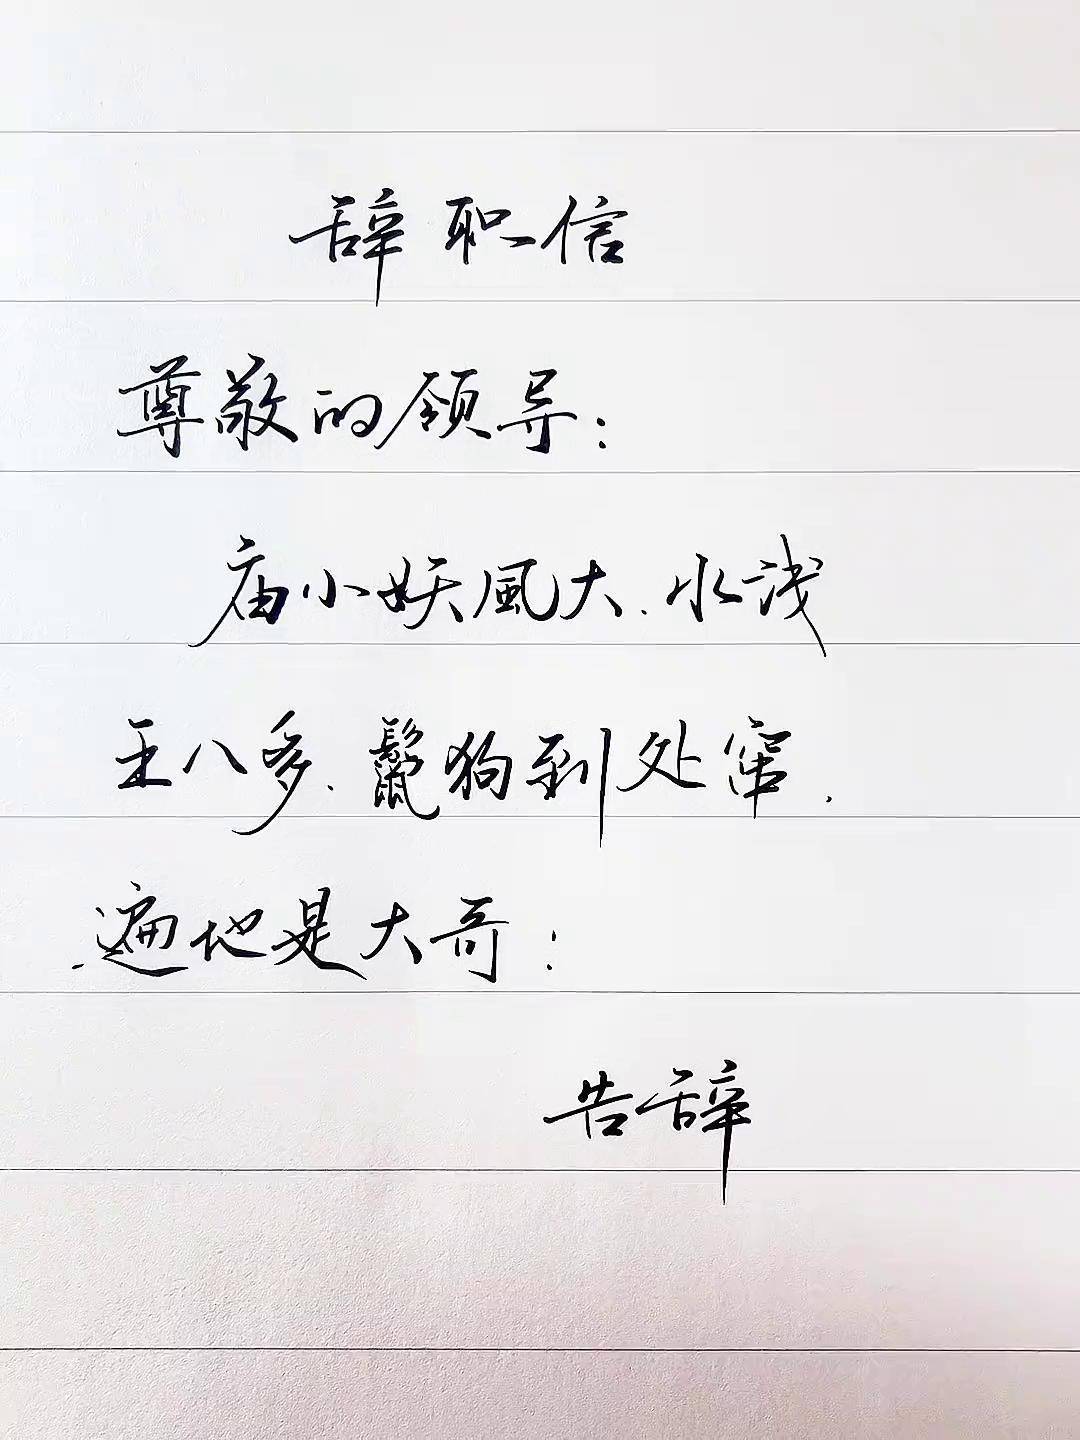 辞职信
尊敬的领导:
庙小妖風大、水浅
王八多、鬣狗到处窜,
遍地是大哥:
告辞